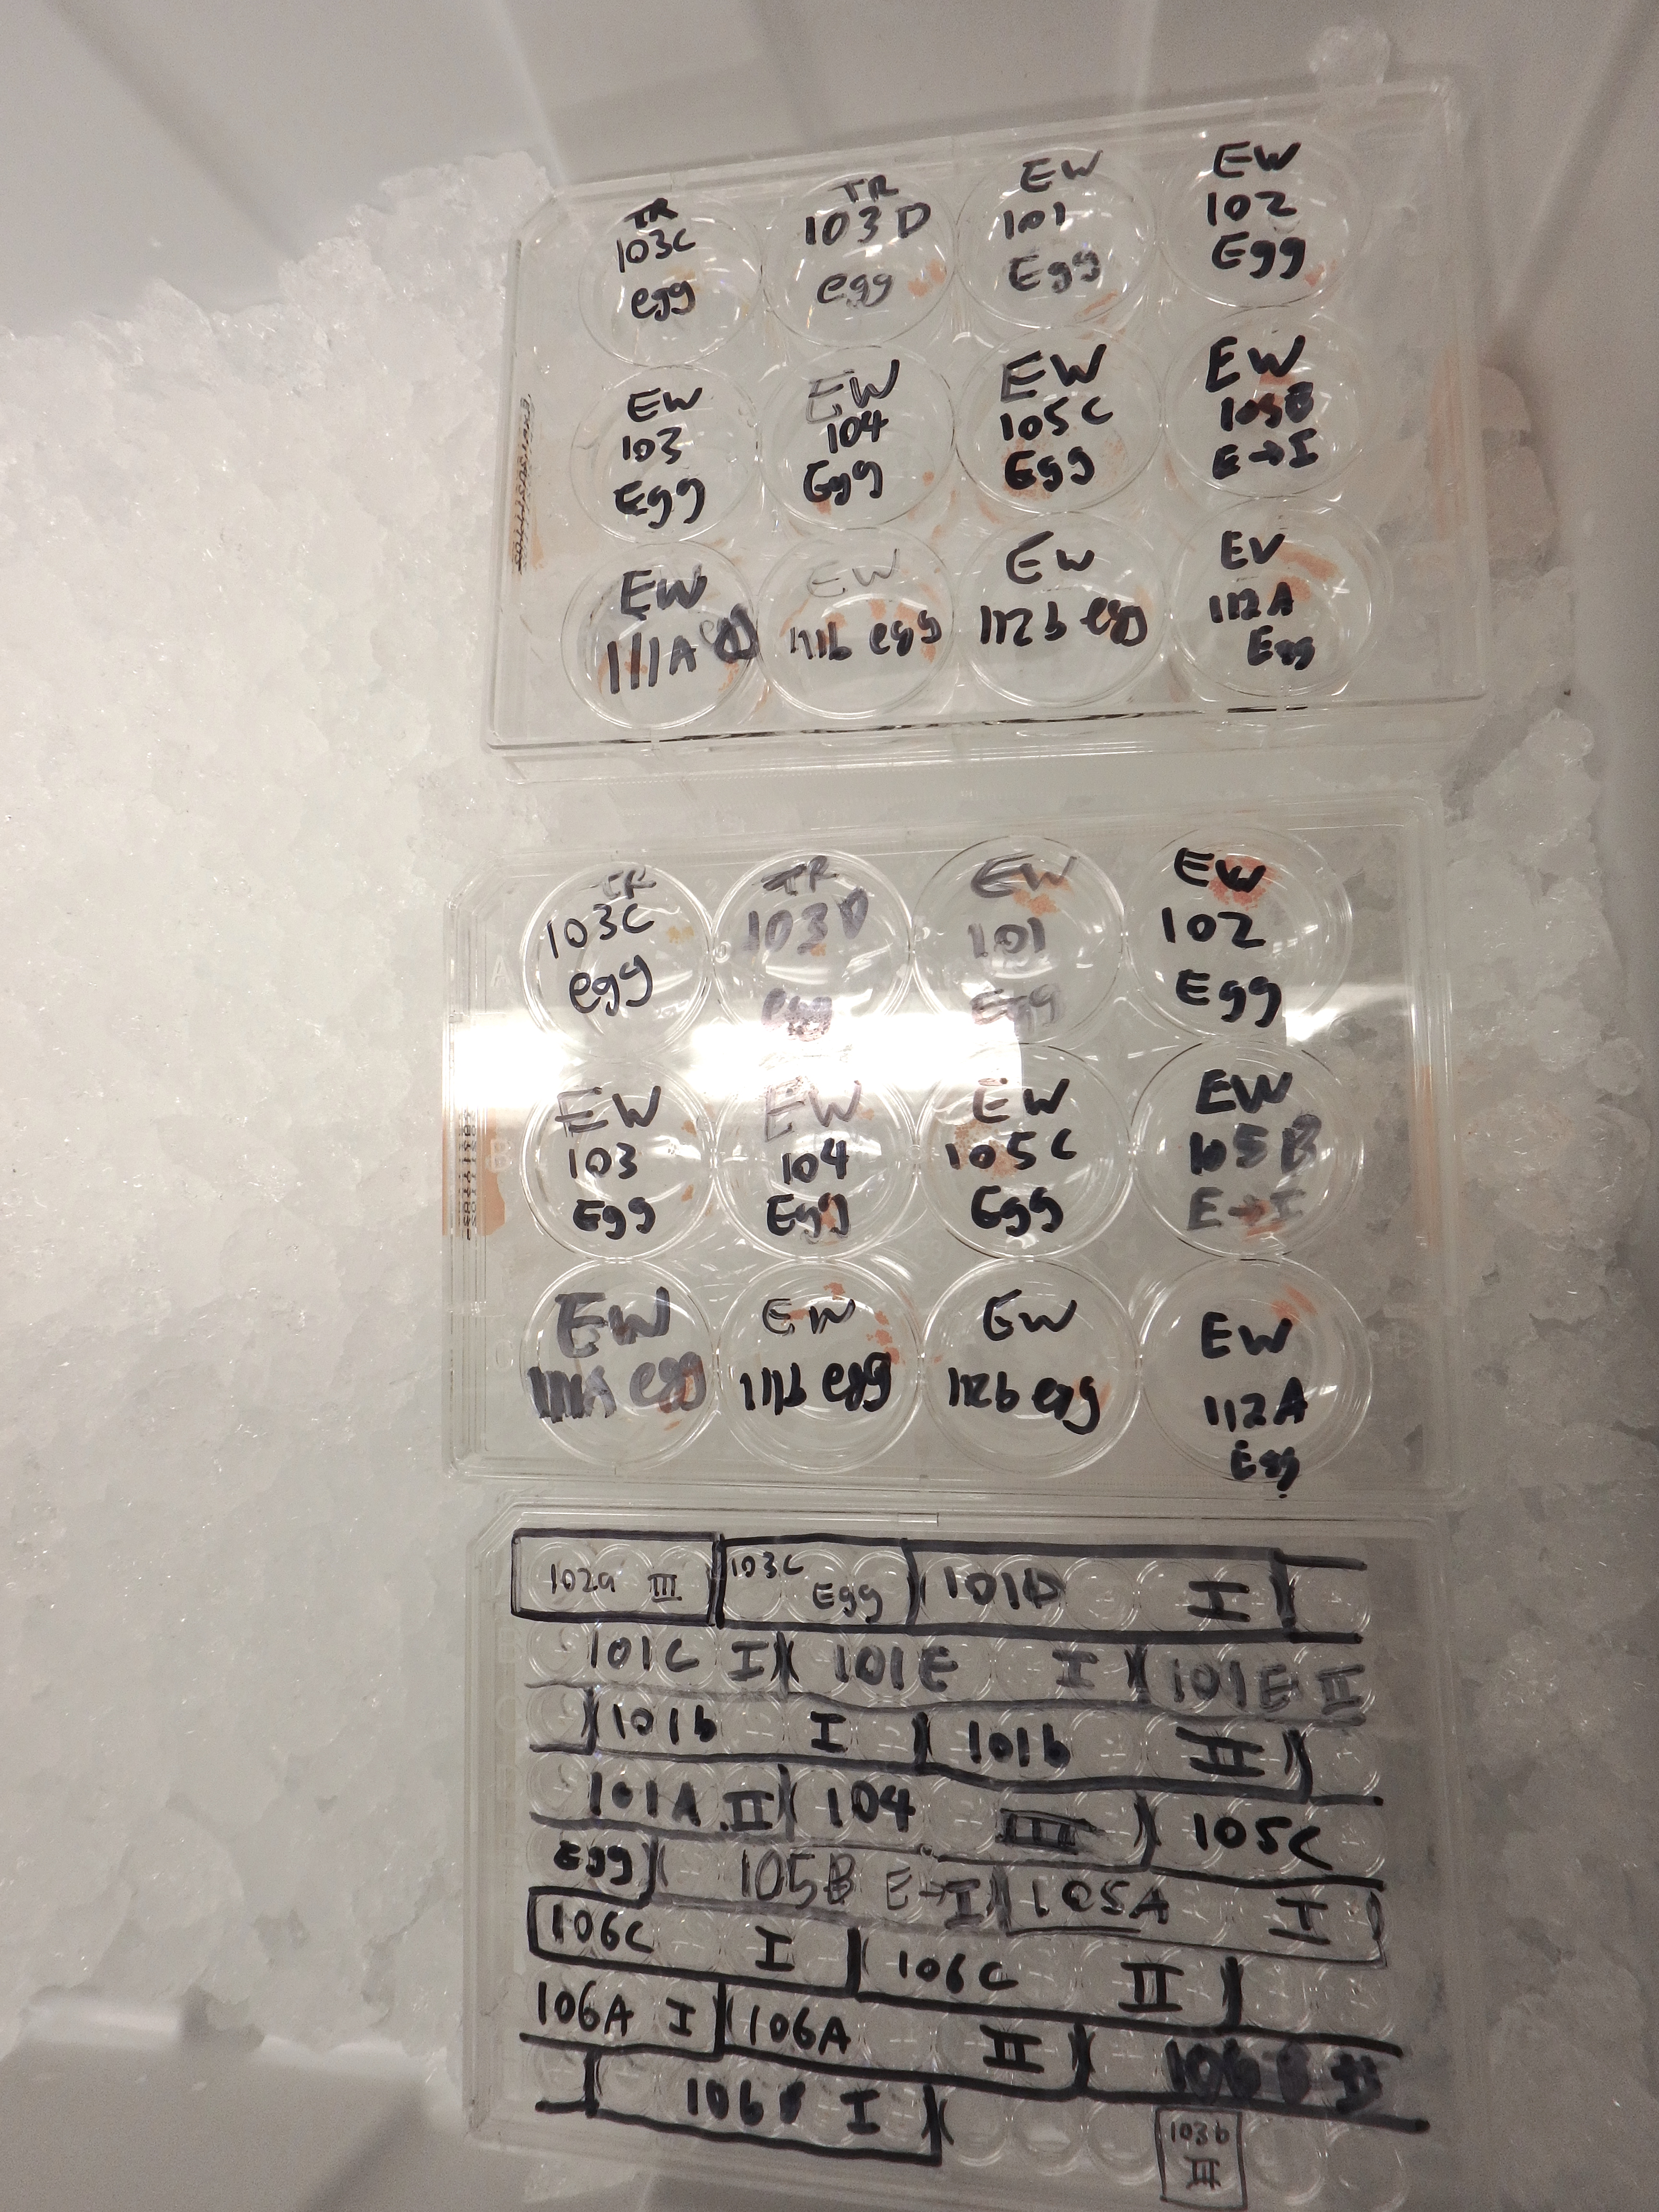 TR
103C
egg
TR
103D
egg
EW
101
Egg
EW
102
Egg
EW
103
Egg
EW
104
Egg
EW
105C
Egg
EW
105B
E→I
EW
111A egg
EW
111b egg
EW
112b egg
EW
112A
Egg
TR
103C
egg
TR
103D
egg
EW
101
Egg
EW
102
Egg
EW
103
Egg
EW
104
Egg
EW
105C
Egg
EW
105B
E→I
EW
111A egg
EW
111b egg
EW
112b egg
EW
112A
Egg
102a III
103C
Egg
101D I
101C I
101E I
101E II
101b I
101b II
101A II
104 III
105C
Egg
105B E→I
105A I
106C I
106C II
106A I
106A II
106 I
103b
III